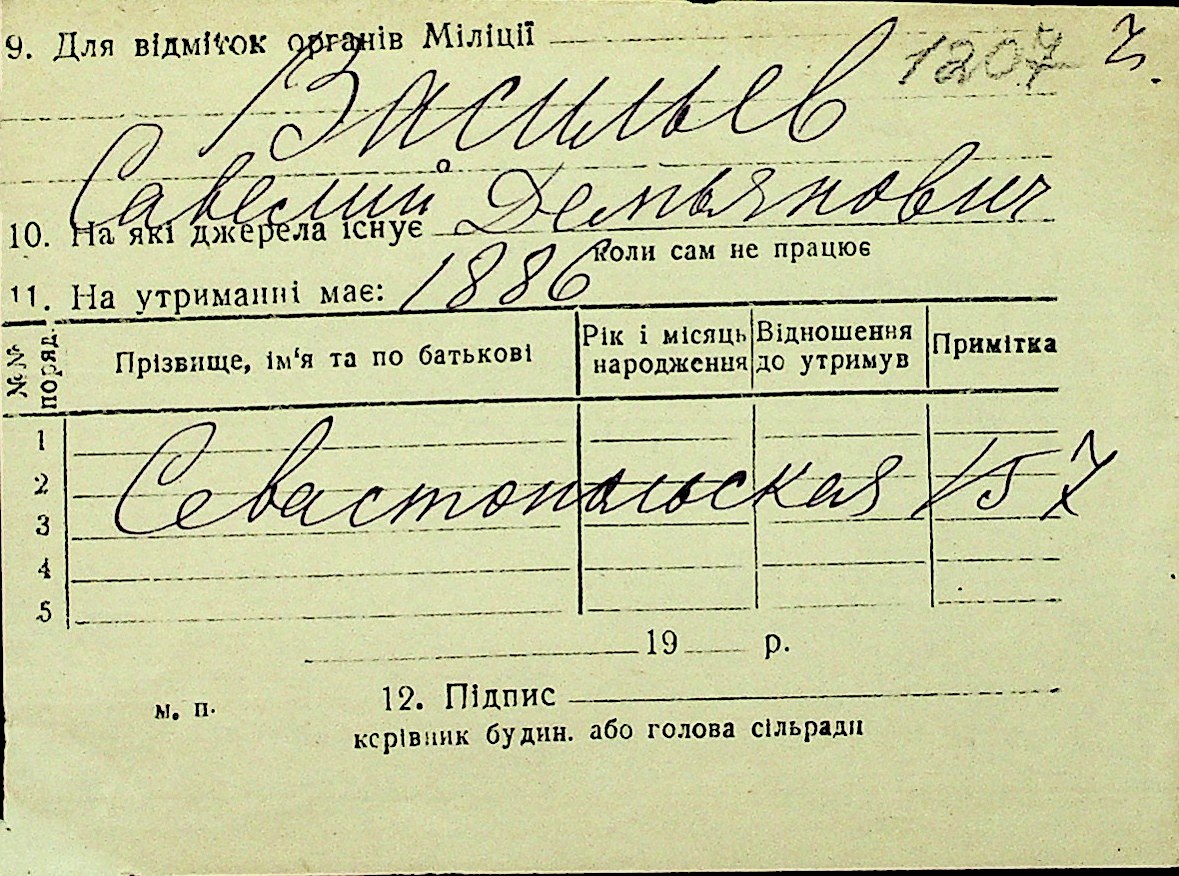 9. Для відміток органів Міліції 1207 г.
Васильев
Савелий Демьянович
10. На які джерела існує
коли сам не працює
11. На утриманні має: 1886
№№ поряд.
Прізвище, ім'я та по батькові
Рік і місяць народження
Відношення до утримув
Примітка
1
2
Севастопольская 157
3
4
5
19 р.
м. п.
12. Підпис
керівник будин. або голова сільради